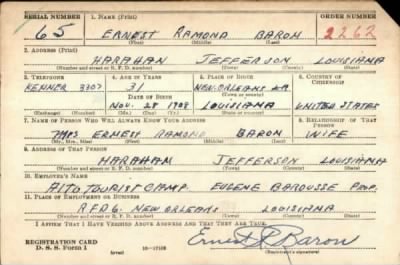 SERIAL NUMBER 1. NAME (Print) ORDER NUMBER
65 ERNEST RAMOND BARON 2262
(First) (Middle) (Last)
2. ADDRESS (Print)
HARAHAN JEFFERSON LOUISIANA
(Number and street or R. F. D. number) (Town) (County) (State)
3. TELEPHONE 4. AGE IN YEARS 5. PLACE OF BIRTH 6. COUNTRY OF CITIZENSHIP
KENNER 3307 31 NEW ORLEANS LA
DATE OF BIRTH (Town or county)
NOV. 28 1908 LOUISIANA UNITED STATES
(Exchange) (Number) (Mo.) (Day) (Yr.) (State or country)
7. NAME OF PERSON WHO WILL ALWAYS KNOW YOUR ADDRESS 8. RELATIONSHIP OF THAT PERSON
MRS ERNEST RAMOND BARON WIFE
(Mr., Mrs., Miss) (First) (Middle) (Last)
9. ADDRESS OF THAT PERSON
HARAHAN JEFFERSON LOUISIANA
(Number and street or R. F. D. number) (Town) (County) (State)
10. EMPLOYER'S NAME
TOURIST CAMP EUGENE BAROUSSE PROP.
11. PLACE OF EMPLOYMENT OR BUSINESS
R.F.D 6. NEW ORLEANS LOUISIANA
(Number and street or R. F. D. number) (Town) (County) (State)
I AFFIRM THAT I HAVE VERIFIED ABOVE ANSWERS AND THAT THEY ARE TRUE.
REGISTRATION CARD
D. S. S. Form 1 (over) 16-17105 Ernest R Baron
(Registrant's signature)